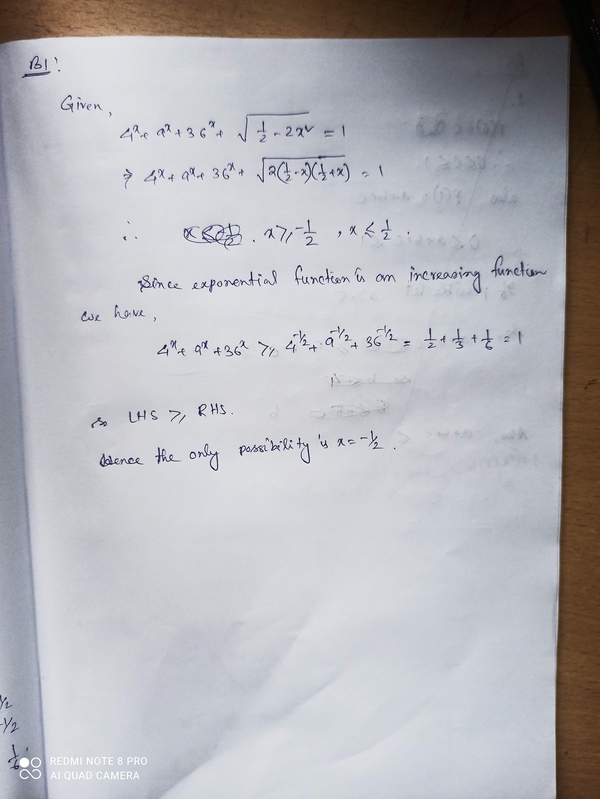 B1:
Given,
4^x + 9^x + 36^x + √(1/2 - 2x²) = 1
⇒ 4^x + 9^x + 36^x + √(2(1/2 - x)(1/2 + x)) = 1
∴ x ≥ -1/2, x ≤ 1/2.
Since exponential function is an increasing function
we have,
4^x + 9^x + 36^x ≥ 4^(-1/2) + 9^(-1/2) + 36^(-1/2) = 1/2 + 1/3 + 1/6 = 1
so LHS ≥ RHS.
Hence the only possibility is x = -1/2.
1/2
-1/2
1/6
REDMI NOTE 8 PRO
AI QUAD CAMERA